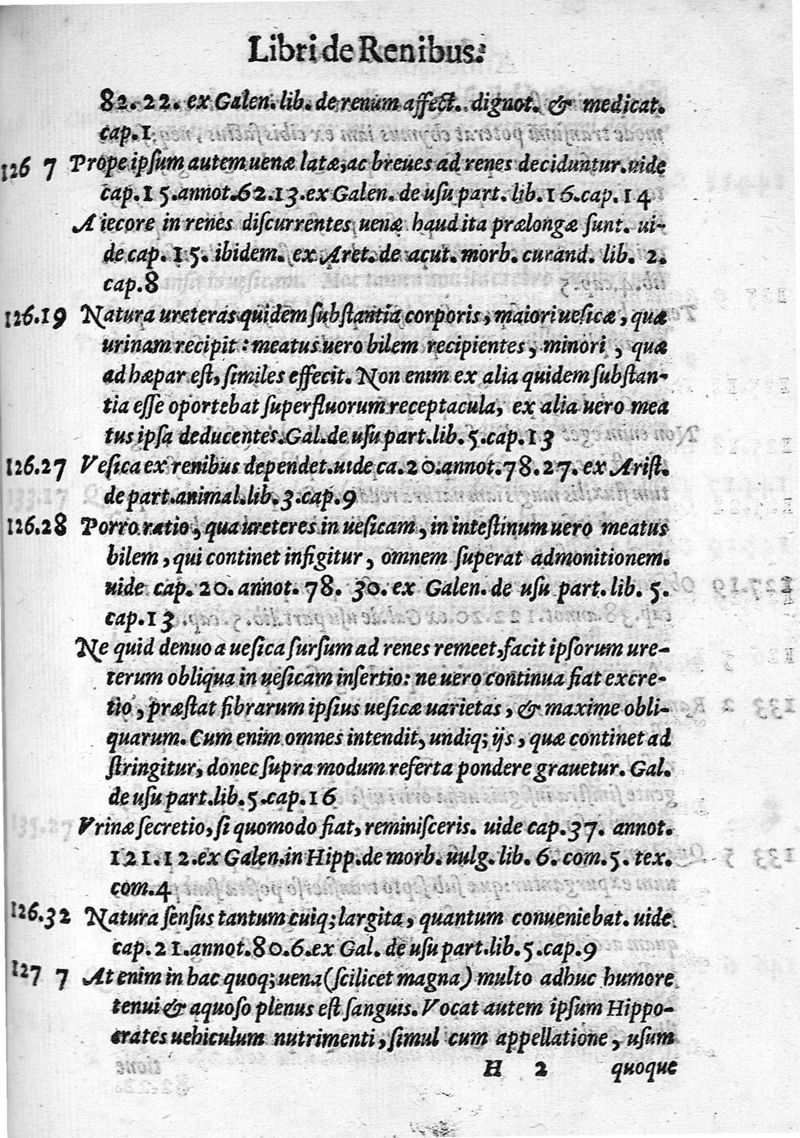 Libri de Renibus.
82. 22. ex Galen. lib. de renum affect. dignot. & medicat.
cap.1
126 7 Prope ipsum autem uenæ latæ, ac breues ad renes deciduntur. uide
cap. 15. annot. 62. 13. ex Galen. de usu part. lib. 16. cap. 14
A iecore in renes discurrentes uenæ haud ita prælongæ sunt. ui-
de cap. 15. ibidem. ex Aret. de acut. morb. curand. lib. 2.
cap.8
126.19 Natura ureteras quidem substantia corporis, maiori uesicæ, quæ
urinam recipit: meatus uero bilem recipientes, minori, quæ
ad hæpar est, similes effecit. Non enim ex alia quidem substan-
tia esse oportebat superfluorum receptacula, ex alia uero mea
tus ipsa deducentes. Gal. de usu part. lib. 5. cap. 13
126.27 Vesica ex renibus dependet. uide ca. 20. annot. 78. 27. ex Arist.
de part. animal. lib. 3. cap. 9
126.28 Porro ratio, qua ureteres in uesicam, in intestinum uero meatus
bilem, qui continet infigitur, omnem superat admonitionem.
uide cap. 20. annot. 78. 30. ex Galen. de usu part. lib. 5.
cap. 13
Ne quid denuo a uesica sursum ad renes remeet, facit ipsorum ure-
terum obliqua in uesicam insertio: ne uero continua fiat excre-
tio, præstat fibrarum ipsius uesicæ uarietas, & maxime obli-
quarum. Cum enim omnes intendit, undiq; ijs, quæ continet ad
stringitur, donec supra modum referta pondere grauetur. Gal.
de usu part. lib. 5. cap. 16
Vrinæ secretio, si quomodo fiat, reminisceris. uide cap. 37. annot.
121. 12. ex Galen. in Hipp. de morb. uulg. lib. 6. com. 5. tex.
com. 4
126.32 Natura sensus tantum cuiq; largita, quantum conueniebat. uide
cap. 21. annot. 80. 6. ex Gal. de usu part. lib. 5. cap. 9
127 7 At enim in hac quoq; uena (scilicet magna) multo adhuc humore
tenui & aquoso plenus est sanguis. Vocat autem ipsum Hippo-
crates uehiculum nutrimenti, simul cum appellatione, usum
H 2 quoque